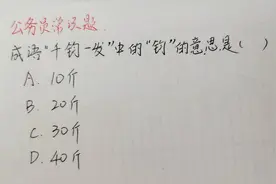 公务员常识题.
成语“千钧一发”中的“钧”的意思是( )
A. 10斤
B. 20斤
C. 30斤
D. 40斤